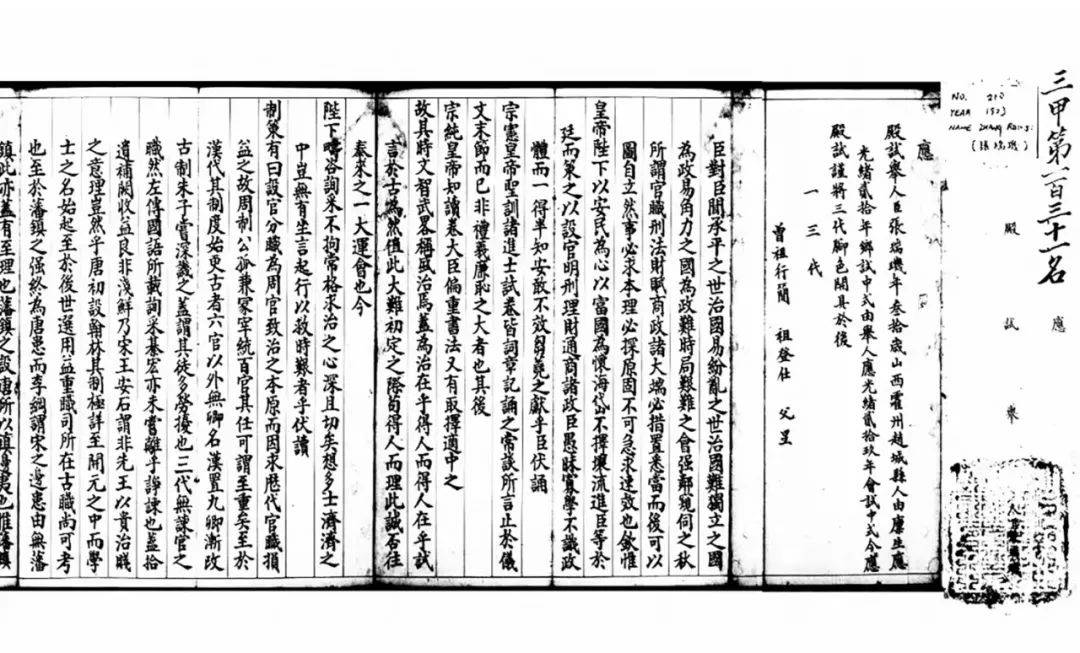 三甲第一百三十一名
應
殿試舉
NO. 210
YEAR 1903
NAME ZHANG RUIJI
(張瑞璣)
應
殿試舉人臣張瑞璣年叁拾歲山西霍州趙城縣人由廩生應
光緒貳拾年鄉試中式由舉人應光緒貳拾玖年會試中式今應
殿試謹將三代腳色開具於後
一三代
曾祖行簡 祖登仕 父星
臣對臣聞承平之世治國易紛亂之世治國難獨立之國
為政易角力之國為政難時局艱難之會强鄰境伺之秋
所謂官職刑法財賦商政諸大端必措置悉當而後可以
圖自立然事必求本理必探原固不可急求速效也欽惟
皇帝陛下以安民為心以富國為懷海岱不擇壤流進臣等於
廷而策之以設官明刑理財通商諸政臣愚昧實學不識政
體而一得羊知安敢不效芻蕘之獻乎臣伏誦
宗憲皇帝聖訓諸進士試卷皆詞章記誦之常談所言止於儀
文末節而已非禮義廉恥之大者也其後
宗純皇帝知讀卷大臣偏重書法又有取擇適中之
故其時文智武畧稱盛治焉蓋為治在乎得人而得人在乎試
言於古為然值此大難初定之際苟得人而理此誠否往
泰來之一大運會也今
陛下疇咨詢采不拘常格求治之心深且切矣想多士濟濟之
中豈無有坐言起行以救時艱者乎伏讀
制策有曰設官分職為周官致治之本原而因求歷代官職損
益之故周制公孤兼冢宰統百官其任可謂至重矣至於
漢代其制度始更古者六官以外無卿名漢置九卿漸改
古制朱子嘗深譏之蓋謂其徒多勞擾也三代無諫官之
職然左傳國語所載詢采綦宏亦未嘗離乎諍諫也蓋拾
遺補闕收益良非淺鮮乃宋王安石謂非先王以貴治賤
之意理豈然乎唐初設翰林其制極詳至開元之中而學
士之名始起至於後世選用益重職司所在古職尚可考
也至於藩鎮之强終為唐患而李綱謂宋之邊患由無藩
鎮此亦蓋有至理也藩鎮之設唐所以鎮邊夷也惟藩鎮